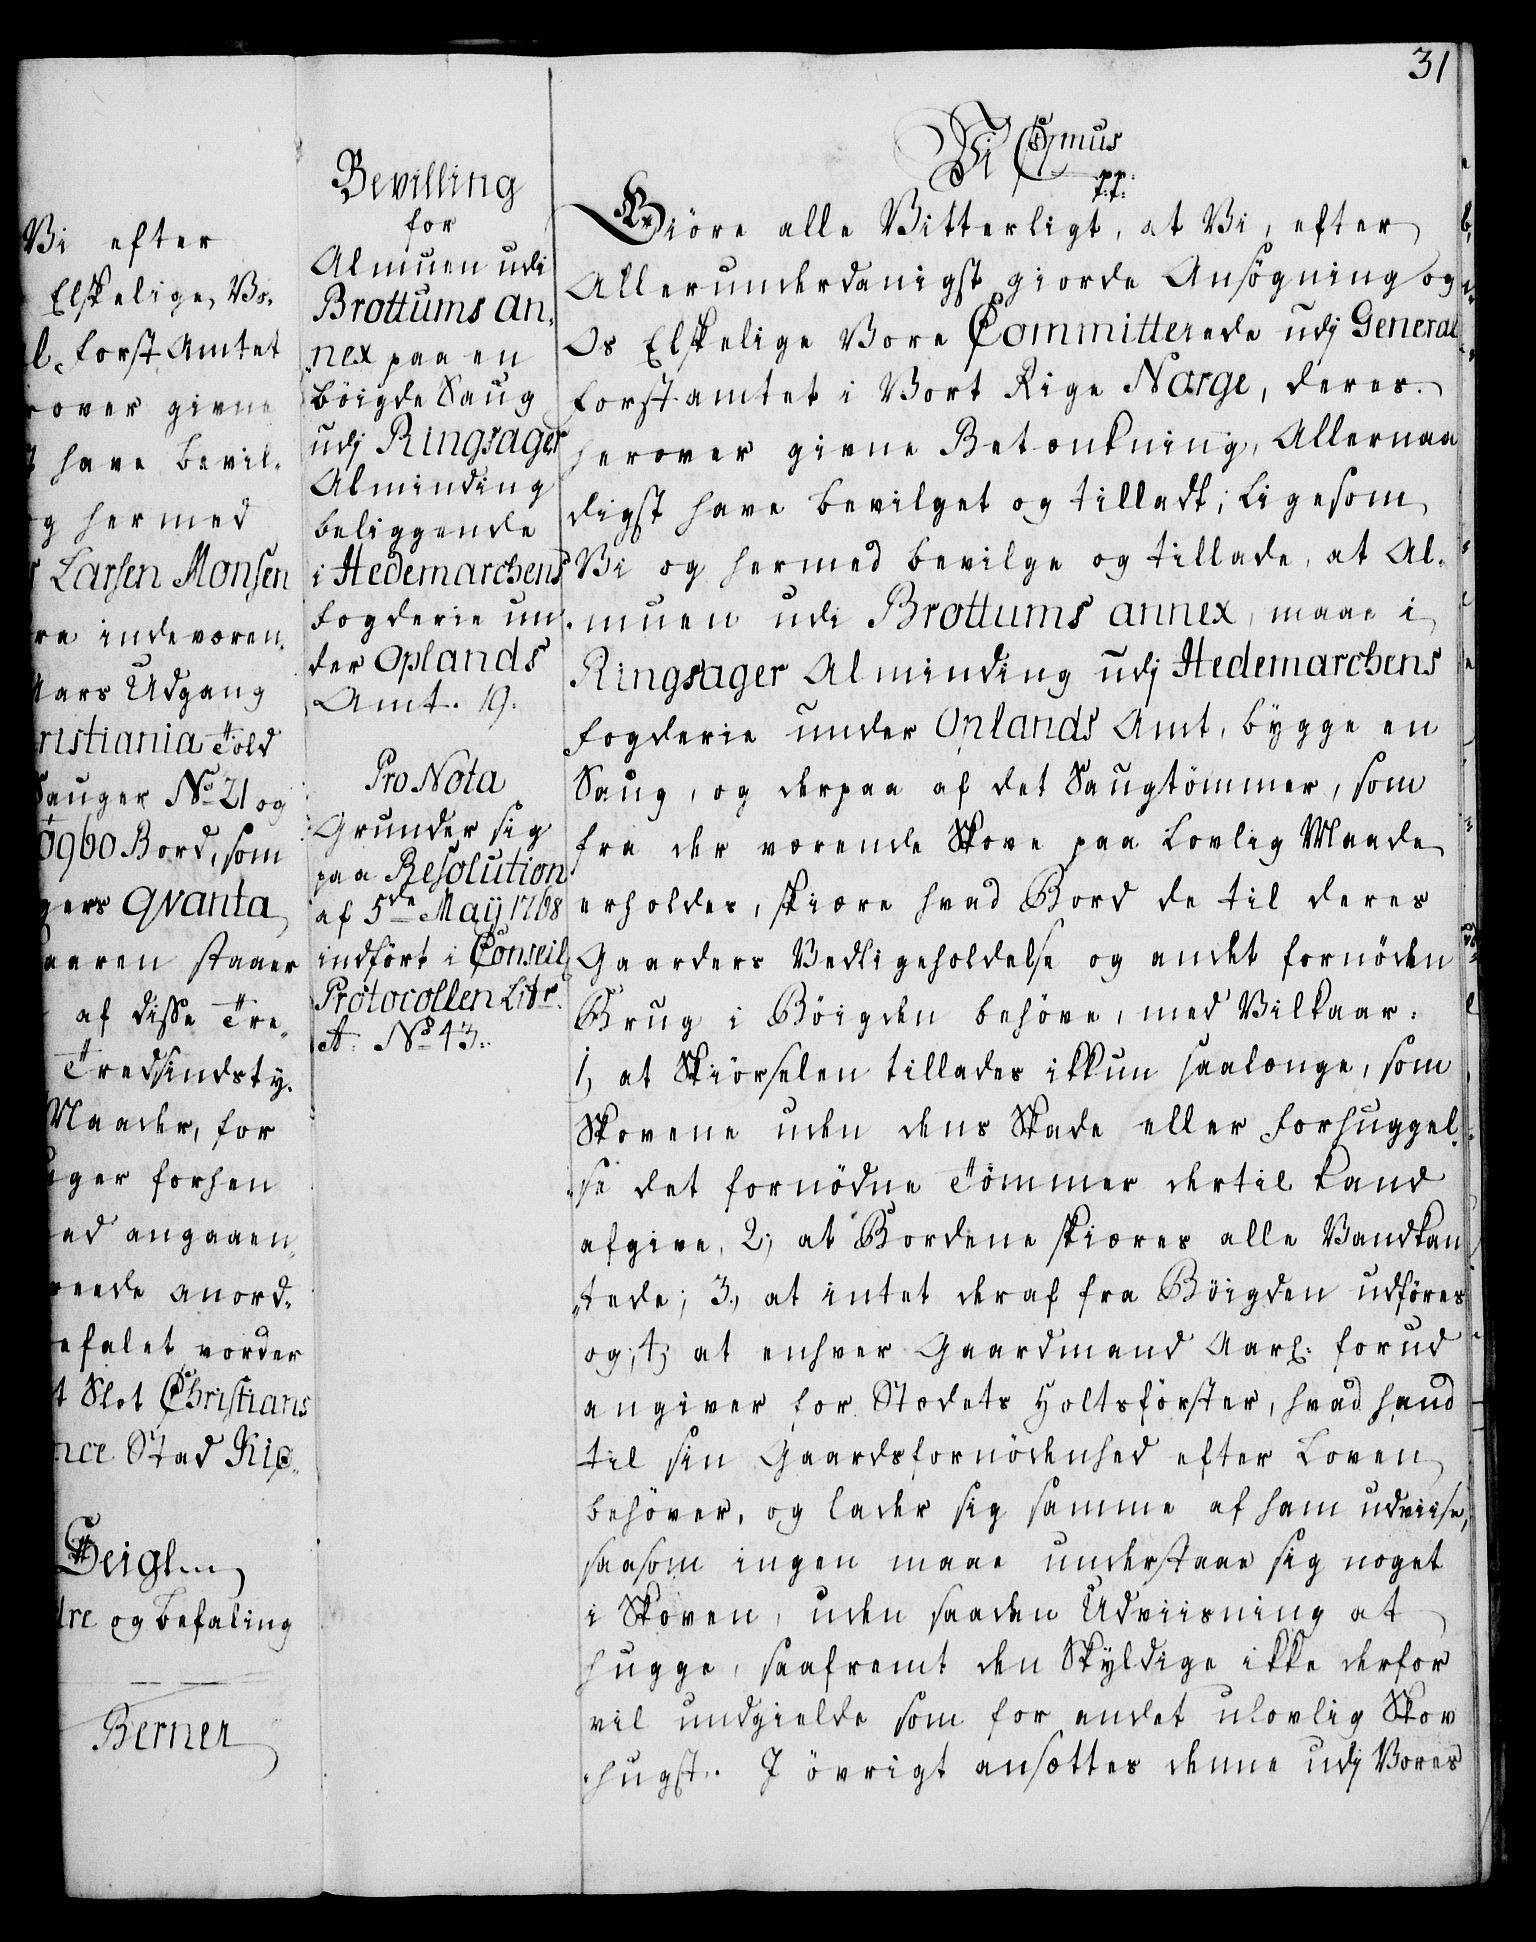 31
Vi efter
Elskelige, Vo-
l. Forst Amtet
rover givne
have bevil-
g hermed
Larsen Monsen
re indeværen-
Aars Udgang
ristiania Told
Sauger No 21 og
0960 Bord, som
gers Qvanta
aaren staaer
af disse Tre,
Tredsindsty-
Maader, for
uger forhen
ad angaaen-
reede anord-
efalet vorder
t Slot Christians
nce Stad Kiø-
Seigl
dre og Befaling
Berner
Bevilling
for
Almuen udi
Brøttums an-
nex paa en
Böigde Saug
udj Ringsager
Alminding
beliggende
i Hedemarchens
Fogderie un-
der Oplands
Amt. 19.
Pro Nota
Grunder sig
paa Resolution
af 5de Maij 1768
indfört i Conseil
Protocollen Litr.
A. No 43.
Vi C 7mus
pp:
Giöre alle Vitterligt, at Vi, efter
Allerunderdanigst giorde Ansögning og
Os Elskelige Vore Committerede udj General
Forstamtet i Vort Rige Norge, deres
herover givne Betænkning, Allernaa
digst have bevilget og tilladt; Ligesom
Vi og hermed bevilge og tillade, at Al-
muen udi Brøttums annex, maae i
Ringsager Alminding udj Hedemarchens
Fogderie under Oplands Amt, bygge en
Saug, og derpaa af det Saugtömmer, som
fra der værende Skove paa Lovlig Maade
erholdes, skiære hvad Bord de til deres
Gaarders Vedligeholdelse og andet fornöden
Brug i Böigden behöve, med Vilkaar:
1, at Skiörselen tillades ikkun saalænge, som
Skovene uden dens Skade eller Forhuggel-
se det fornödne Tömmer dertil kand
afgive, 2; at Bordene skiæres alle Vandkan
tede; 3., at intet deraf fra Böigden udföres
og; 4; at enhver Gaardmand Aarl: forud
angiver for Stedets Holtsförster, hvad hand
til sin Gaardsfornödenhed efter Loven
behöver, og lader sig samme af ham udviise,
saasom ingen maae understaae sig noget
i Skoven, uden saaden Udviisning at
hugge, saafremt den Skyldige ikke derfor
vil undgielde som for andet ulovlig Skov
hugst. I övrigt ansættes denne udj Vores